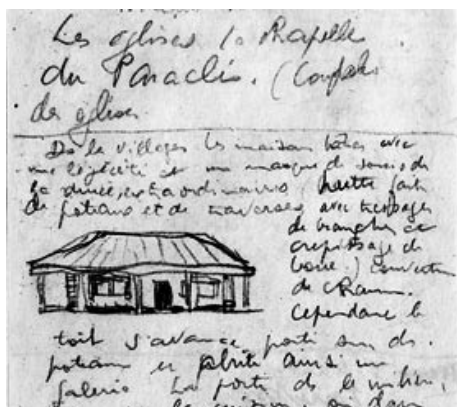 Les églises la chapelle
du Paraclis. (
des églises
Ds le villages les maisons bâties avec
une légèreté et un manque de soucis de
la durée, extraordinaires hutte faite
de poteaux et de traverses avec tressages
de branches et
crepissage de
boue.) Couverture
de chaume.
Cependant le
toit s'avance, porté sur ds.
poteaux et abrite ainsi une
Galerie La porte ds le milieu,